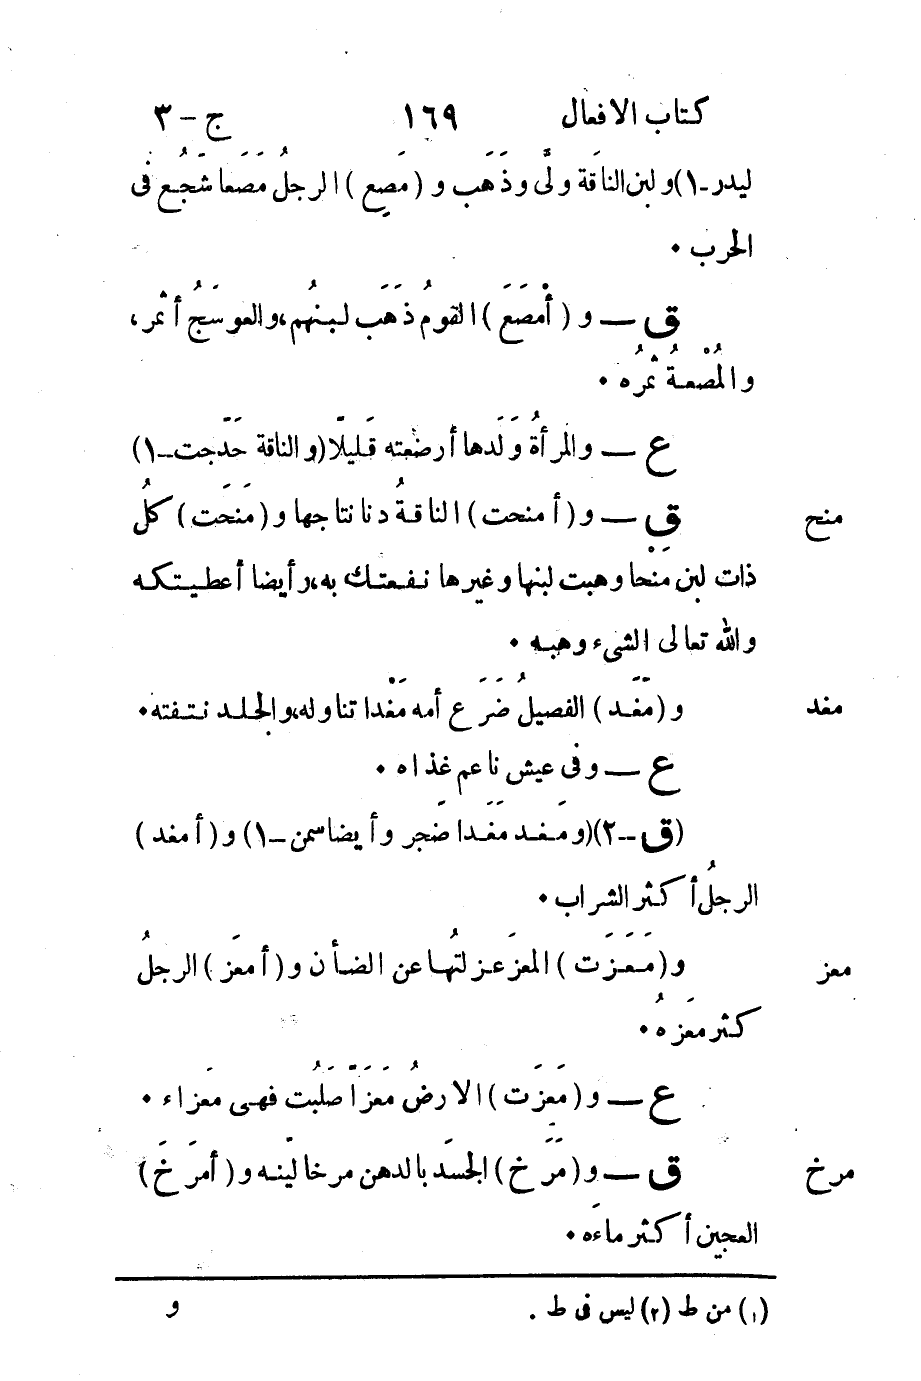 كتاب الافعال ١٦٩ ج - ٣
ليدر-١) ولبن الناقَة ولَّى وذَهَب و (مَصِع) الرجلُ مَصَعا شَجُع فى
الحرب •
ق — و (أمْصَعَ) القومُ ذَهَبَ لبنُهم، والعوسَجُ أثمرَ،
والمُصْعةُ ثمرُه •
ع — والمرأةُ وَلَدَها أرضعَته قَليلًا (والناقة حَدّجت-١)
منح ق — و (أمنحت) الناقةُ دنا نتاجها و (مَنَحَت) كلُّ
ذات لبن مَنْحا وهبت لبنها وغيرها نفعتك به، وأيضا أعطيتكه
والله تعالى الشىء وهبه •
مغد و (مَغَد) الفصيلُ ضَرَع أمه مَغْدا تناوله، والجلد نتفته •
ع — وفى عيش ناعم غذاه •
(ق -٢)(ومغد مَغَدا ضَجر وأيضا سمن -١) و (أمغد)
الرجلُ أكثر الشراب •
معز و (مَعَزَت) المعزَ عزلتُها عن الضأن و (أمعَز) الرجلُ
كثر معَزهُ •
ع — و (مَعِزَت) الارضُ مَعَزًا صَلُبَت فهى مَعزاء •
مرخ ق — و (مَرَخ) الجسَد بالدهن مرخا ليّنه و (أمرَخَ)
العجين أكثر ماءَه •
(١) من ط (٢) ليس فى ط . و